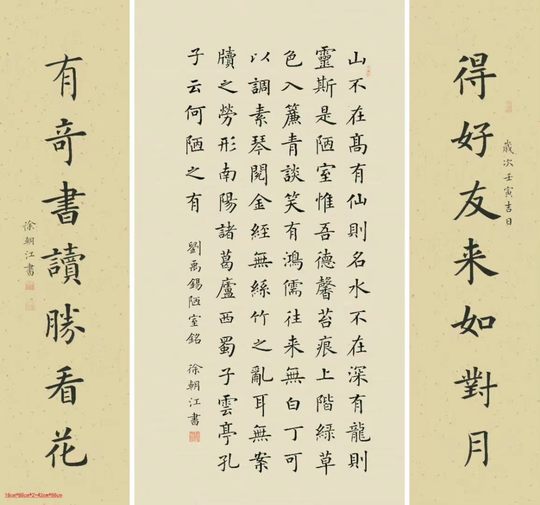 得好友来如對月
歲次壬寅吉日
山不在髙有仙則名水不在深有龍則
靈斯是陋室惟吾德馨苔痕上階緑草
色入簾青談笑有鴻儒往来無白丁可
以調素琴閱金經無絲竹之亂耳無案
牘之勞形南陽諸葛廬西蜀子雲亭孔
子云何陋之有
劉禹錫陋室銘 徐朝江書
有奇書讀勝看花
徐朝江書